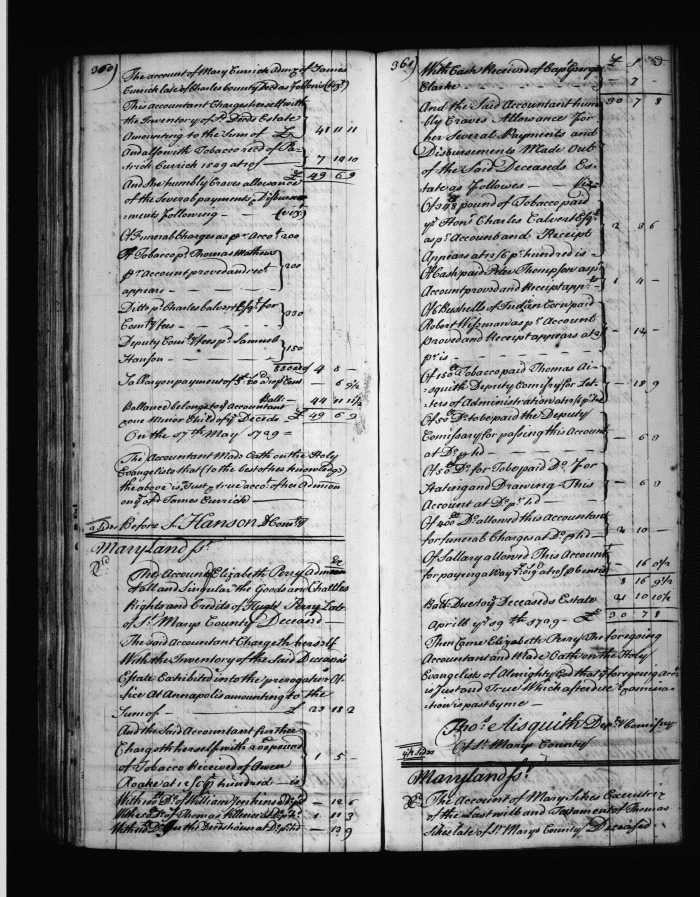 360)
The account of Mary Currick Admx. of James
Currick late of Charles County Decd as follows (viz)
This accountant Charges herself with
the Inventory of sd. Deceds Estate
Amounting to the Sum of £ 41 11 11
And also with Tobacco reced of Pa-
trick Currick 1509 at rof — 7 14 10
£ 49 6 9
And She humbly Craves allowance
of the Several payments & Disburse
ments following — (viz)
Of Funeral Charges as pr. Acco.t 200
Of Tobacco pd. Thomas Mathews
pr. Account proved and rect
appears — 200
Ditto pd. Charles Calvert Esqr. for
Comry. fees — 330
Deputy Comrys fees pd. Samuel
Hanson — 150
880 at of 4 8 —
To Sallary on payment of — 6 9½
Ball: — 44 11 11½
Ballance belongs to ye Accountant
& one Minor Child of ye Decds £ 49 6 9
On the 17th May 1729 =
The Accountant Made Oath on the Holy
Evangelists that (to the best of her knowledge)
the above is Just & true acct. of her Admon
on ye sd. James Currick —
Before S. Hanson D Comry
Maryland ss.
The Account Elizabeth Perry Admx
of all and Singular the Goods and Chattles
Rights and Credits of Hugh Perry Late
of St. Marys County Deceased —
The said Accountant Chargeth herself
With the Inventory of the Said Deceaseds
Estate Exhibited into the prerogative Of-
fice At Annapolis amounting to the
Sum of — £ 23 18 2
And the Said Accountant further
Chargeth herself with 200 pound
of Tobacco Received of Owen
Roake at 12/6 p hundred is 1 5 —
With 100 Do. of William Jenkins Do. pd — 12 6
With Do. of Thomas Hillener at Do. p hd. 1 11 3
With Do. In the Deceds house at Do. p hd — 13 9
361)
£ S D
With Cash Received of Capt. George
Clarke — — 7 —
30 7 8
And the Said Accountant hum
bly Craves Allowance for
her Several Payments and
Disbursements Made Out
of the Said Deceaseds Es-
tate as followes — Viz
Of 348 pound of Tobacco paid
ye Honr. Charles Calvert Esqr.
as pr. Account and Receipt
Appears at 12/6 p hundred is — 2 3 6
Of Cash paid Peter Thompson as pr
Account proved and Receipt appr: — 1 4 —
Of Bushells of Indian Corn paid
Robert Wiseman as pr. Account
proved and Receipt appears at 2/
pr is — — 14 —
Of 150 Tobacco paid Thomas Ai-
squith Deputy Comisry for Let-
ters of Administration at 12/6 p hd — 18 9
Of 50 Do. to be paid the Deputy
Comissary for passing this Account
at Do. p hd — — 6 3
Of 50 Do. for To be paid Do. For
Stating and Drawing This
Account at Do. p hd — — 6 3
Of 400 Do. allowed this Accountant
for funeral Charges at Do. p hd — 2 10 —
Of Sallary allowed This Account
for paying away — 16 0½
8 16 9½
Ball: Due to ye Deceaseds Estate 21 10 10½
Aprill ye 29th 1729 — £ 30 7 8
Then Came Elizabeth Perry The foregoing
Accountant and Made Oath on the Holy
Evangelists of Almighty God that ye foregoing acct
is Just and True Which after due Examina
tion is past by me —
Tho.s Aisquith Dep.ty Comissry
Of St. Mary County
Maryland ss.
The Account of Mary Sikes Executrix
of the Last will and Testament of Thomas
Sikes late of St. Marys County Deceased